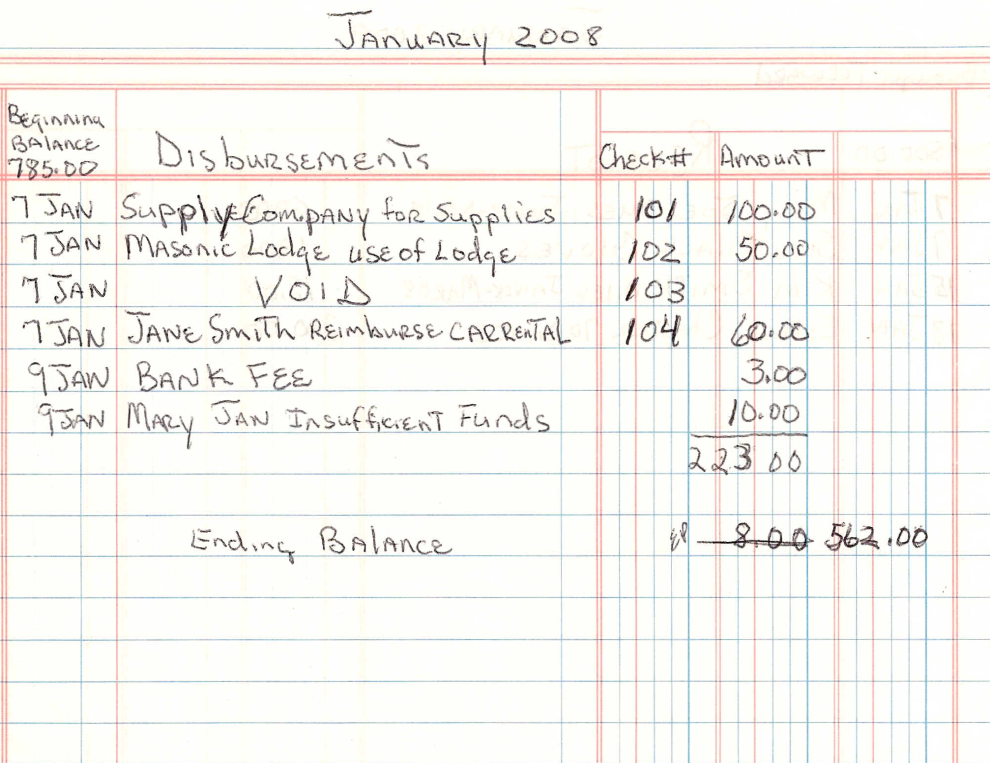 January 2008
Beginning
Balance
785.00
Disbursements
Check# Amount
7 Jan Supply Company for Supplies 101 100.00
7 Jan Masonic Lodge use of Lodge 102 50.00
7 Jan VOID 103
7 Jan Jane Smith Reimburse Car Rental 104 60.00
9 Jan Bank Fee 3.00
9 Jan Mary Jan Insufficient Funds 10.00
223 00
Ending Balance 8.00 562.00